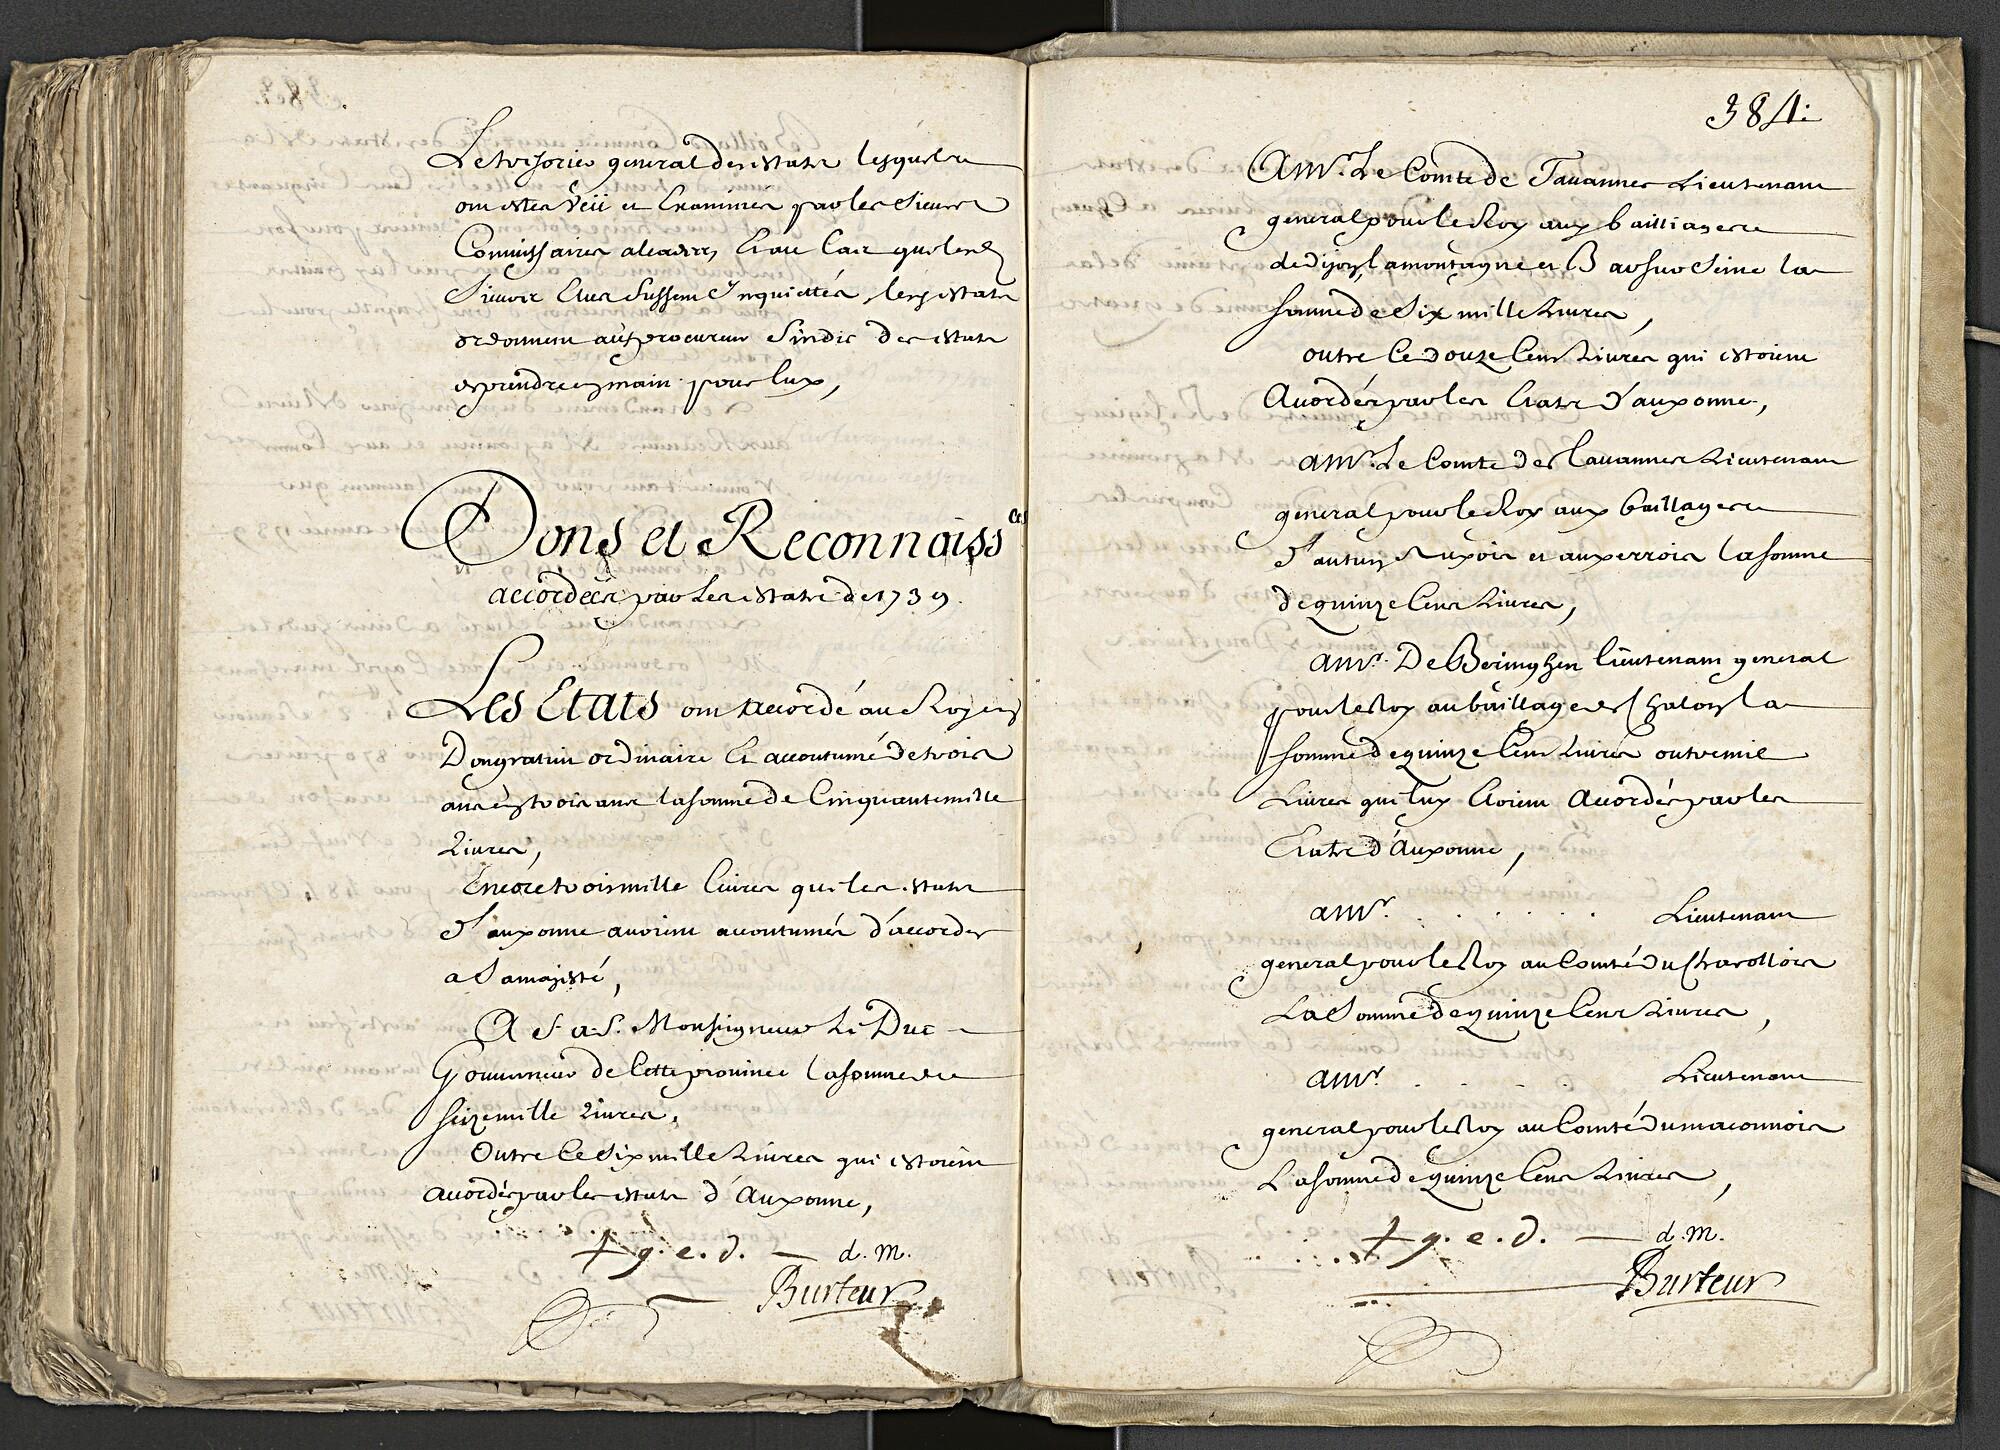 Le tresorier general des estats lesquels
ont estés veü et Examinés par les sieurs
Commissaires alcades, Et au Cas que les
sieurs Elus fussent Inquiettés, lesd estats
ordonnent au procureur sindic des estats
de prendre en main pour Eux,
Dons et Reconnaiss ces
accordées par Les estats de 1739.
Les Etats ont accordé au Roy en
Don gratuit ordinaire Et accoutumé de trois
ans en trois ans la somme de Cinquante mille
Livres,
Encore trois mille livres que les estats
d'auxonne avoient accoutumés d'accorder
a sa majesté,
A S. a. S. Monseigneur Le Duc
Gouverneur de Cette province la somme de
seize mille Livres,
Outre Ce six mille Livres qui estoient
accordés par les estats d'Auxonne,
† g. e. d. — d. m.
Burteur
384.
A Mr. Le Comte de Tavannes Lieutenant
general pour le Roy aux bailliages
de dijon, la montagne et Bar sur seine la
somme de six mille Livres,
outre Ce douze Cent Livres qui estoient
Accordés par les Etats d'auxonne,
A Mr. Le Comte de Tavannes Lieutenant
general pour le Roy aux baillages
d'autun Auxois et auxerrois la somme
de quinze Cent Livres,
A Mr. De Beringhen lieutenant general
pour le Roy au baillage de Chalon la
somme de quinze Cent Livres outre mil
Livres qui luy Etoient Accordés par les
Etats d'Auxonne,
A Mr. . . . . . . Lieutenant
general pour le Roy au Comté du Charollois
La somme de quinze Cent Livres,
A Mr. . . . . Lieutenant
general pour le Roy au Comté du maconnois
La somme de quinze Cent Livres,
† g. e. d. — d. m.
Burteur